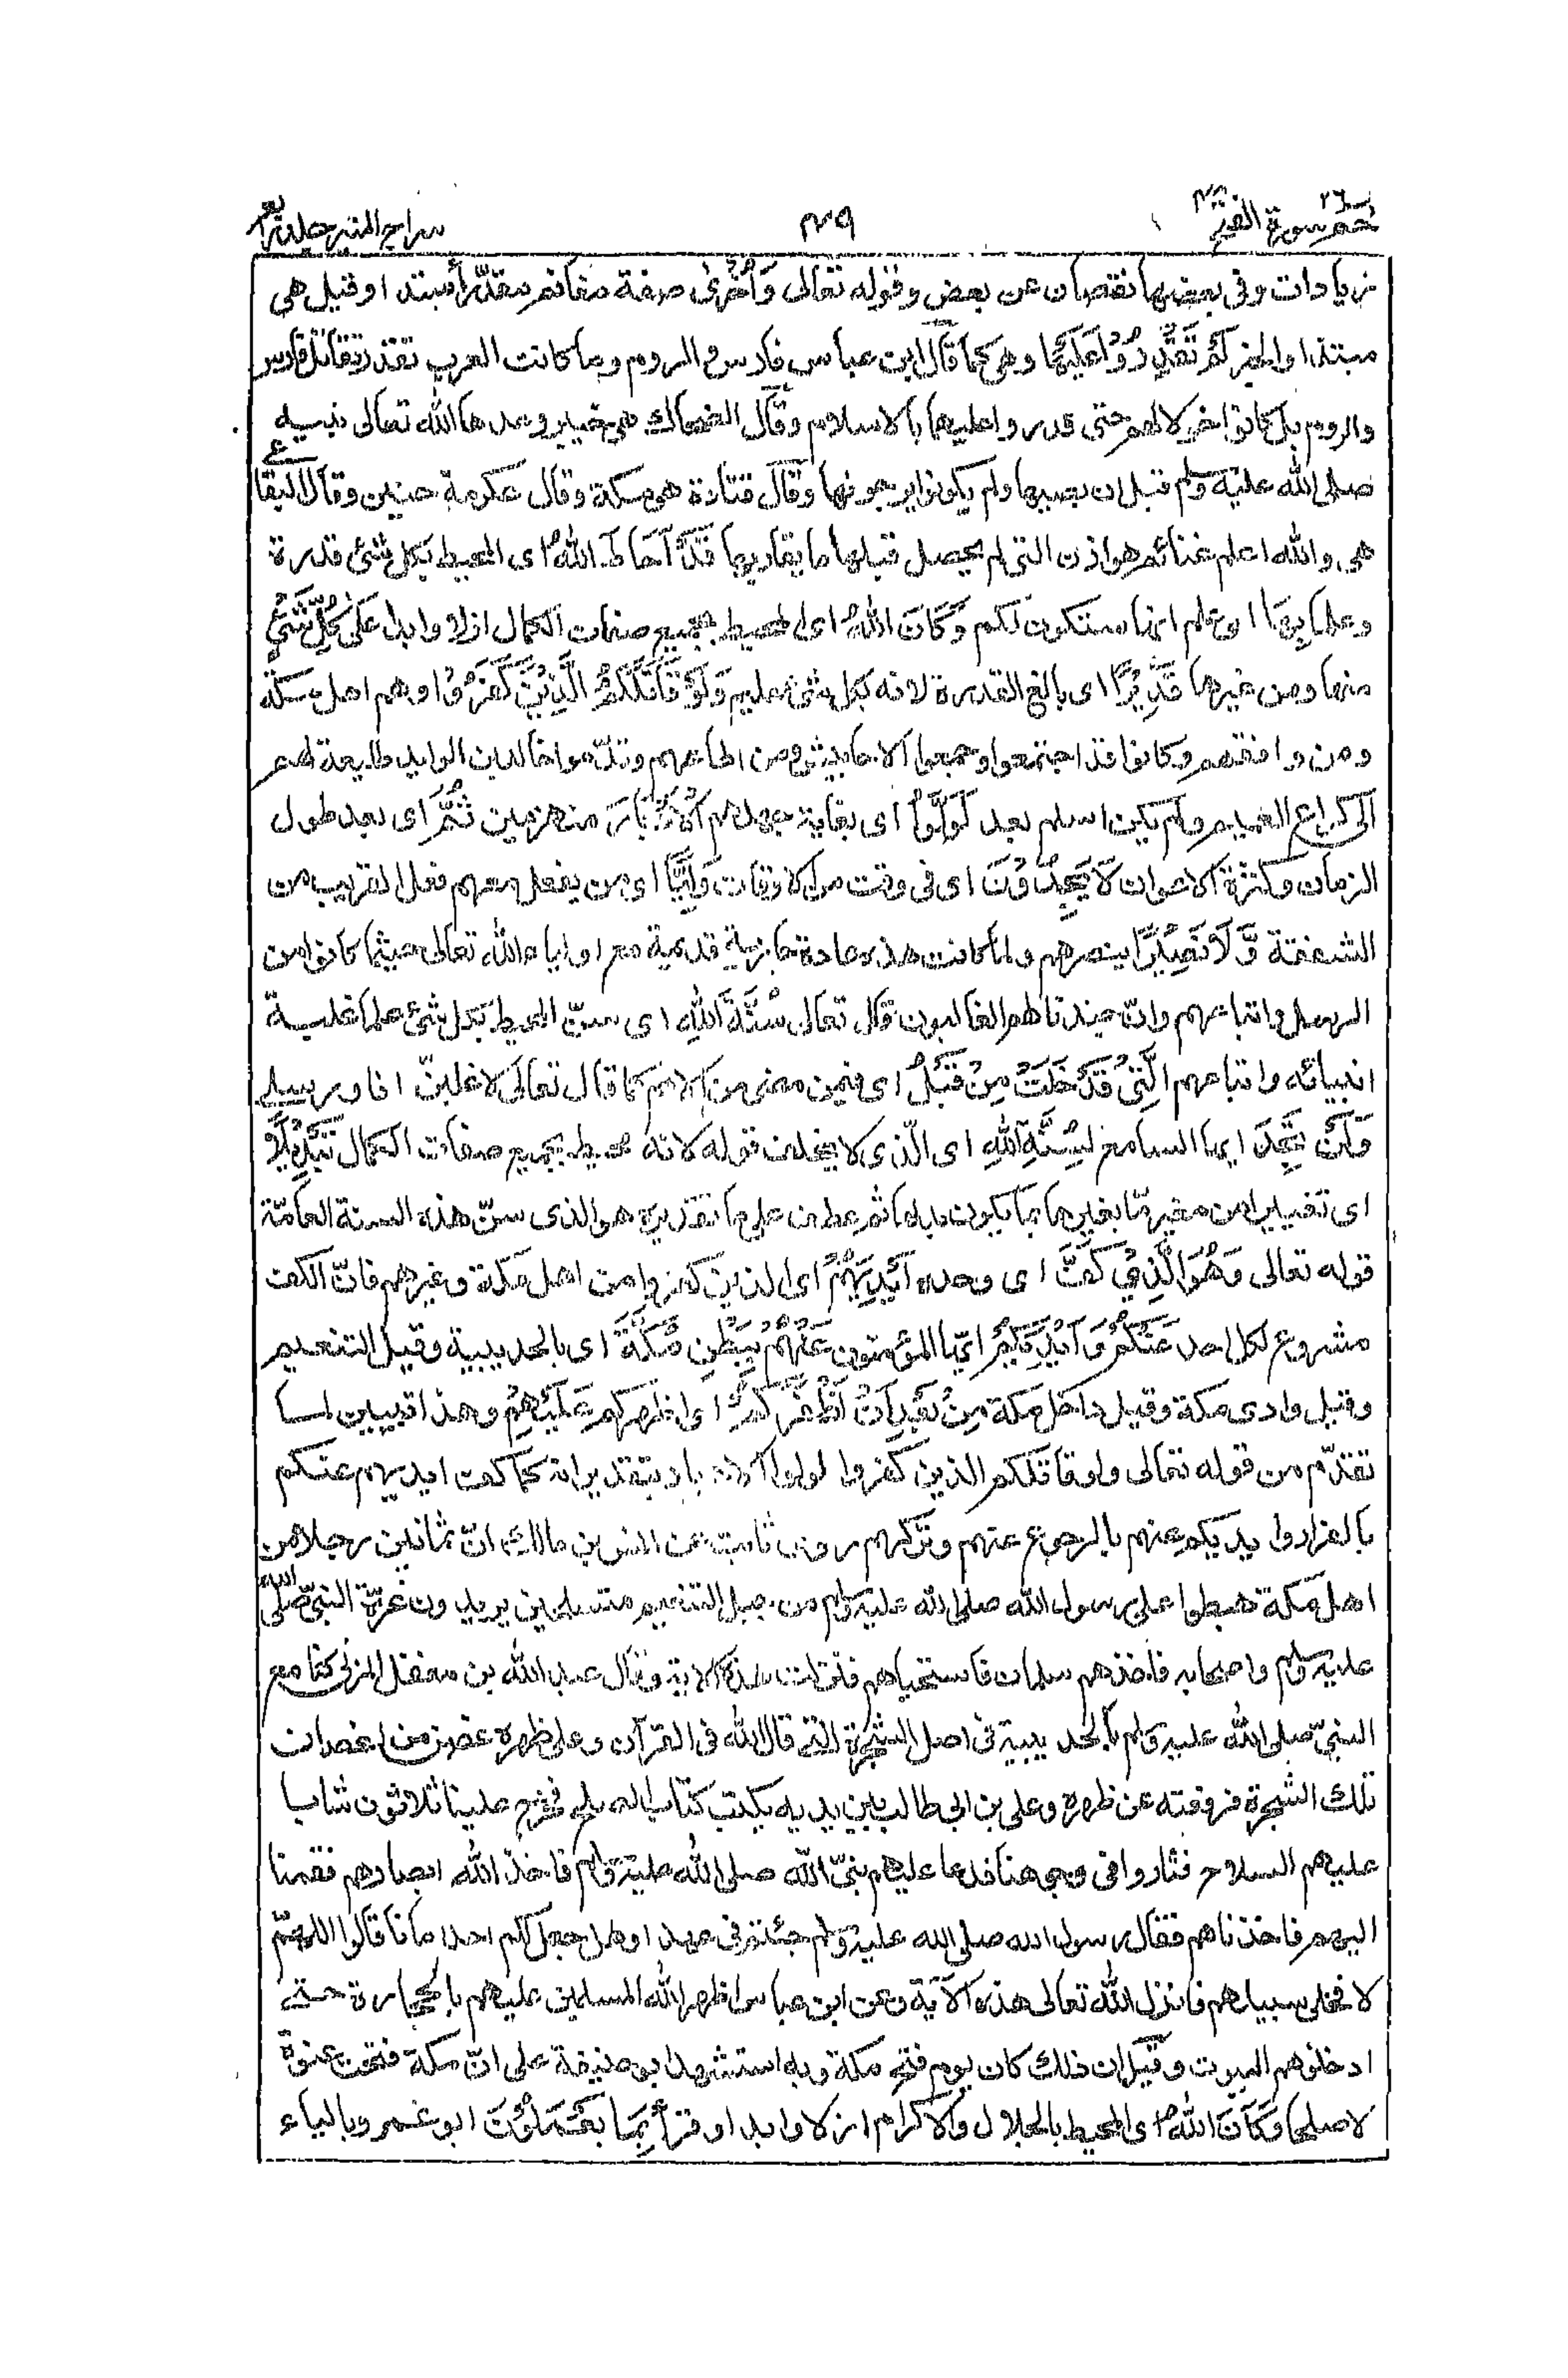 حم ٢٦ سورة الفتح ٤٨
٤٩
سراج المنير جلد رابع
زيادات وفى بعضها نقصان عن بعض وقوله تعالى وَأُخْرَىٰ صفة مغانم مقدّرا مبتدا وقيل هى
مبتدا والخبر لَمْ تَقْدِرُوْا عَلَيْهَا وهى كما قال ابن عباس فارس والروم وما كانت العرب تقدر تقاتل فارس
والروم بل كانوا خولا لهم حتى قدروا عليها بالاسلام وقال الضحاك هى خيبر وعدها الله تعالى نبيه
صلى الله عليه وسلم قبل ان يصيبها ولم يكونوا يرجونها وقال قتادة هى مكة وقال عكرمة حنين وقال البقاعى
هى والله اعلم غنائم هوازن التى لم يحصل قبلها ما يقاربها قَدْ اَحَاطَ اللّٰهُ اى المحيط بكل شئ قدرة
وعلما بِهَا اى علم انها ستكون لكم وَكَانَ اللّٰهُ اى المحيط بجميع صفات الكمال ازلا وابدا عَلٰى كُلِّ شَيْءٍ
منها ومن غيرها قَدِيْرًا اى بالغ القدرة لانه بكل شئ عليم وَلَوْ قَاتَلَكُمُ الَّذِيْنَ كَفَرُوْا وهم اهل مكة
ومن وافقهم وكانوا قد اجتمعوا وجمعوا الاحابيش ومن اطاعهم وقدّموا خالد بن الوليد طليعة لهم
الى كراع الغميم ولم يكن اسلم بعد لَوَلَّوُا اى بغاية جهدهم الْاَدْبَارَ منهزمين ثُمَّ اى بعد طول
الزمان وكثرة الاعوان لَا يَجِدُوْنَ اى فى وقت من الاوقات وَلِيًّا اى من يفعل معهم فعل القريب من
الشفقة وَّلَا نَصِيْرًا ينصرهم ولما كانت هذه عادة جارية قديمة مع اولياء الله تعالى حيثما كانوا من
الرسل واتباعهم وانّ جندنا لهم الغالبون قال تعالى سُنَّةَ اللّٰهِ اى سنّ المحيط بكل شئ علما غلبة
انبيائه واتباعهم الَّتِيْ قَدْ خَلَتْ مِنْ قَبْلُ اى فيمن مضى من الامم كما قال تعالى لاغلبنّ انا ورسلى
وَلَنْ تَجِدَ ايها السامع لِسُنَّةِ اللّٰهِ اى الّذى لا يخلف قوله لانه محيط بجميع صفات الكمال تَبْدِيْلًا
اى تغييرا من مغير مّا بغيرها بما يكون بدلها ثم عطف على ما تقديره هو الذى سنّ هذه السنة العامّة
قوله تعالى وَهُوَ الَّذِيْ كَفَّ اى وحده اَيْدِيَهُمْ اى الذين كفروا من اهل مكة وغيرهم فانّ الكف
مشروع لكل احد عَنْكُمْ وَاَيْدِيَكُمْ ايّها المؤمنون عَنْهُمْ بِبَطْنِ مَكَّةَ اى بالحديبية وقيل التنعيم
وقيل وادى مكة وقيل داخل مكة مِنْ بَعْدِ اَنْ اَظْفَرَكُمْ اى اظهركم عَلَيْهِمْ وهذا تبيين لما
تقدّم من قوله تعالى ولو قاتلكم الذين كفروا لولوا الادبار بتقدير انه كما كف ايديهم عنكم
بالفرار وايديكم عنهم بالرجوع عنهم وتركهم روى ثابت عن انس بن مالك انّ ثمانين رجلا من
اهل مكة هبطوا على رسول الله صلى الله عليه وسلم من جبل التنعيم متسلحين يريدون غرّة النبىّ صلى الله
عليه وسلم واصحابه فاخذهم سلما فاستحياهم فنزلت هذه الاية وقال عبد الله بن مغفل المزنى كنا مع
النبىّ صلى الله عليه وسلم بالحديبية فى اصل الشجرة التى قال الله فى القرآن وعلى ظهره غصن من اغصان
تلك الشجرة فرفعته عن ظهره وعلى بن ابى طالب بين يديه يكتب كتاب الصلح فخرج علينا ثلاثون شابا
عليهم السلاح فثاروا فى وجوهنا فدعا عليهم نبىّ الله صلى الله عليه وسلم فاخذ الله ابصارهم فقمنا
اليهم فاخذناهم فقال رسول الله صلى الله عليه وسلم جئتم فى عهد او هل جعل لكم احد امانا قالوا اللهمّ
لا فخلى سبيلهم فانزل الله تعالى هذه الآية وعن ابن عباس اظهر الله المسلمين عليهم بالحجارة حتى
ادخلوهم البيوت وقيل ان ذلك كان يوم فتح مكة وبه استشهد ابو حنيفة على انّ مكة فتحت عنوة
لا صلحا وَكَانَ اللّٰهُ اى المحيط بالجلال والاكرام ازلا وابدا وقرأ بِمَا يَعْمَلُوْنَ ابو عمرو بالياء